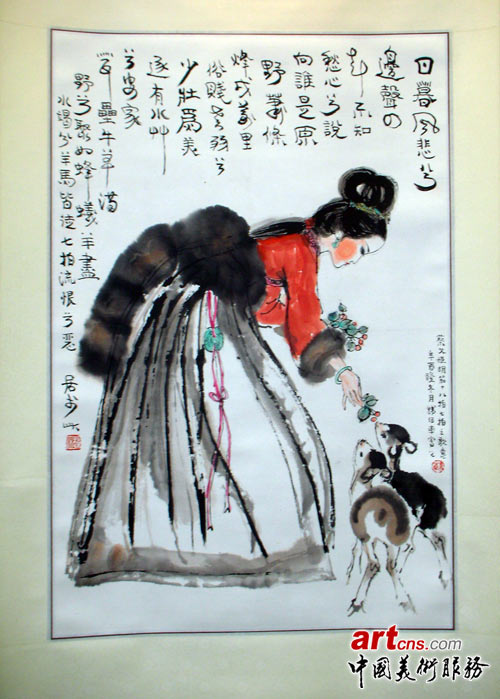 日暮風悲兮
邊聲四
起不知
愁心兮說
向誰是原
野蕭條
烽戍萬里
俗賤老弱兮
少壯爲美
逐有水艸
兮安家
葺壘牛草滿
野兮聚如蜂蟻羊盡
水竭兮羊馬皆徙七拍流恨兮惡
居於此
蔡文姬胡笳十八拍七拍之歌意
辛酉冬月
artcns.com
中國美術服務